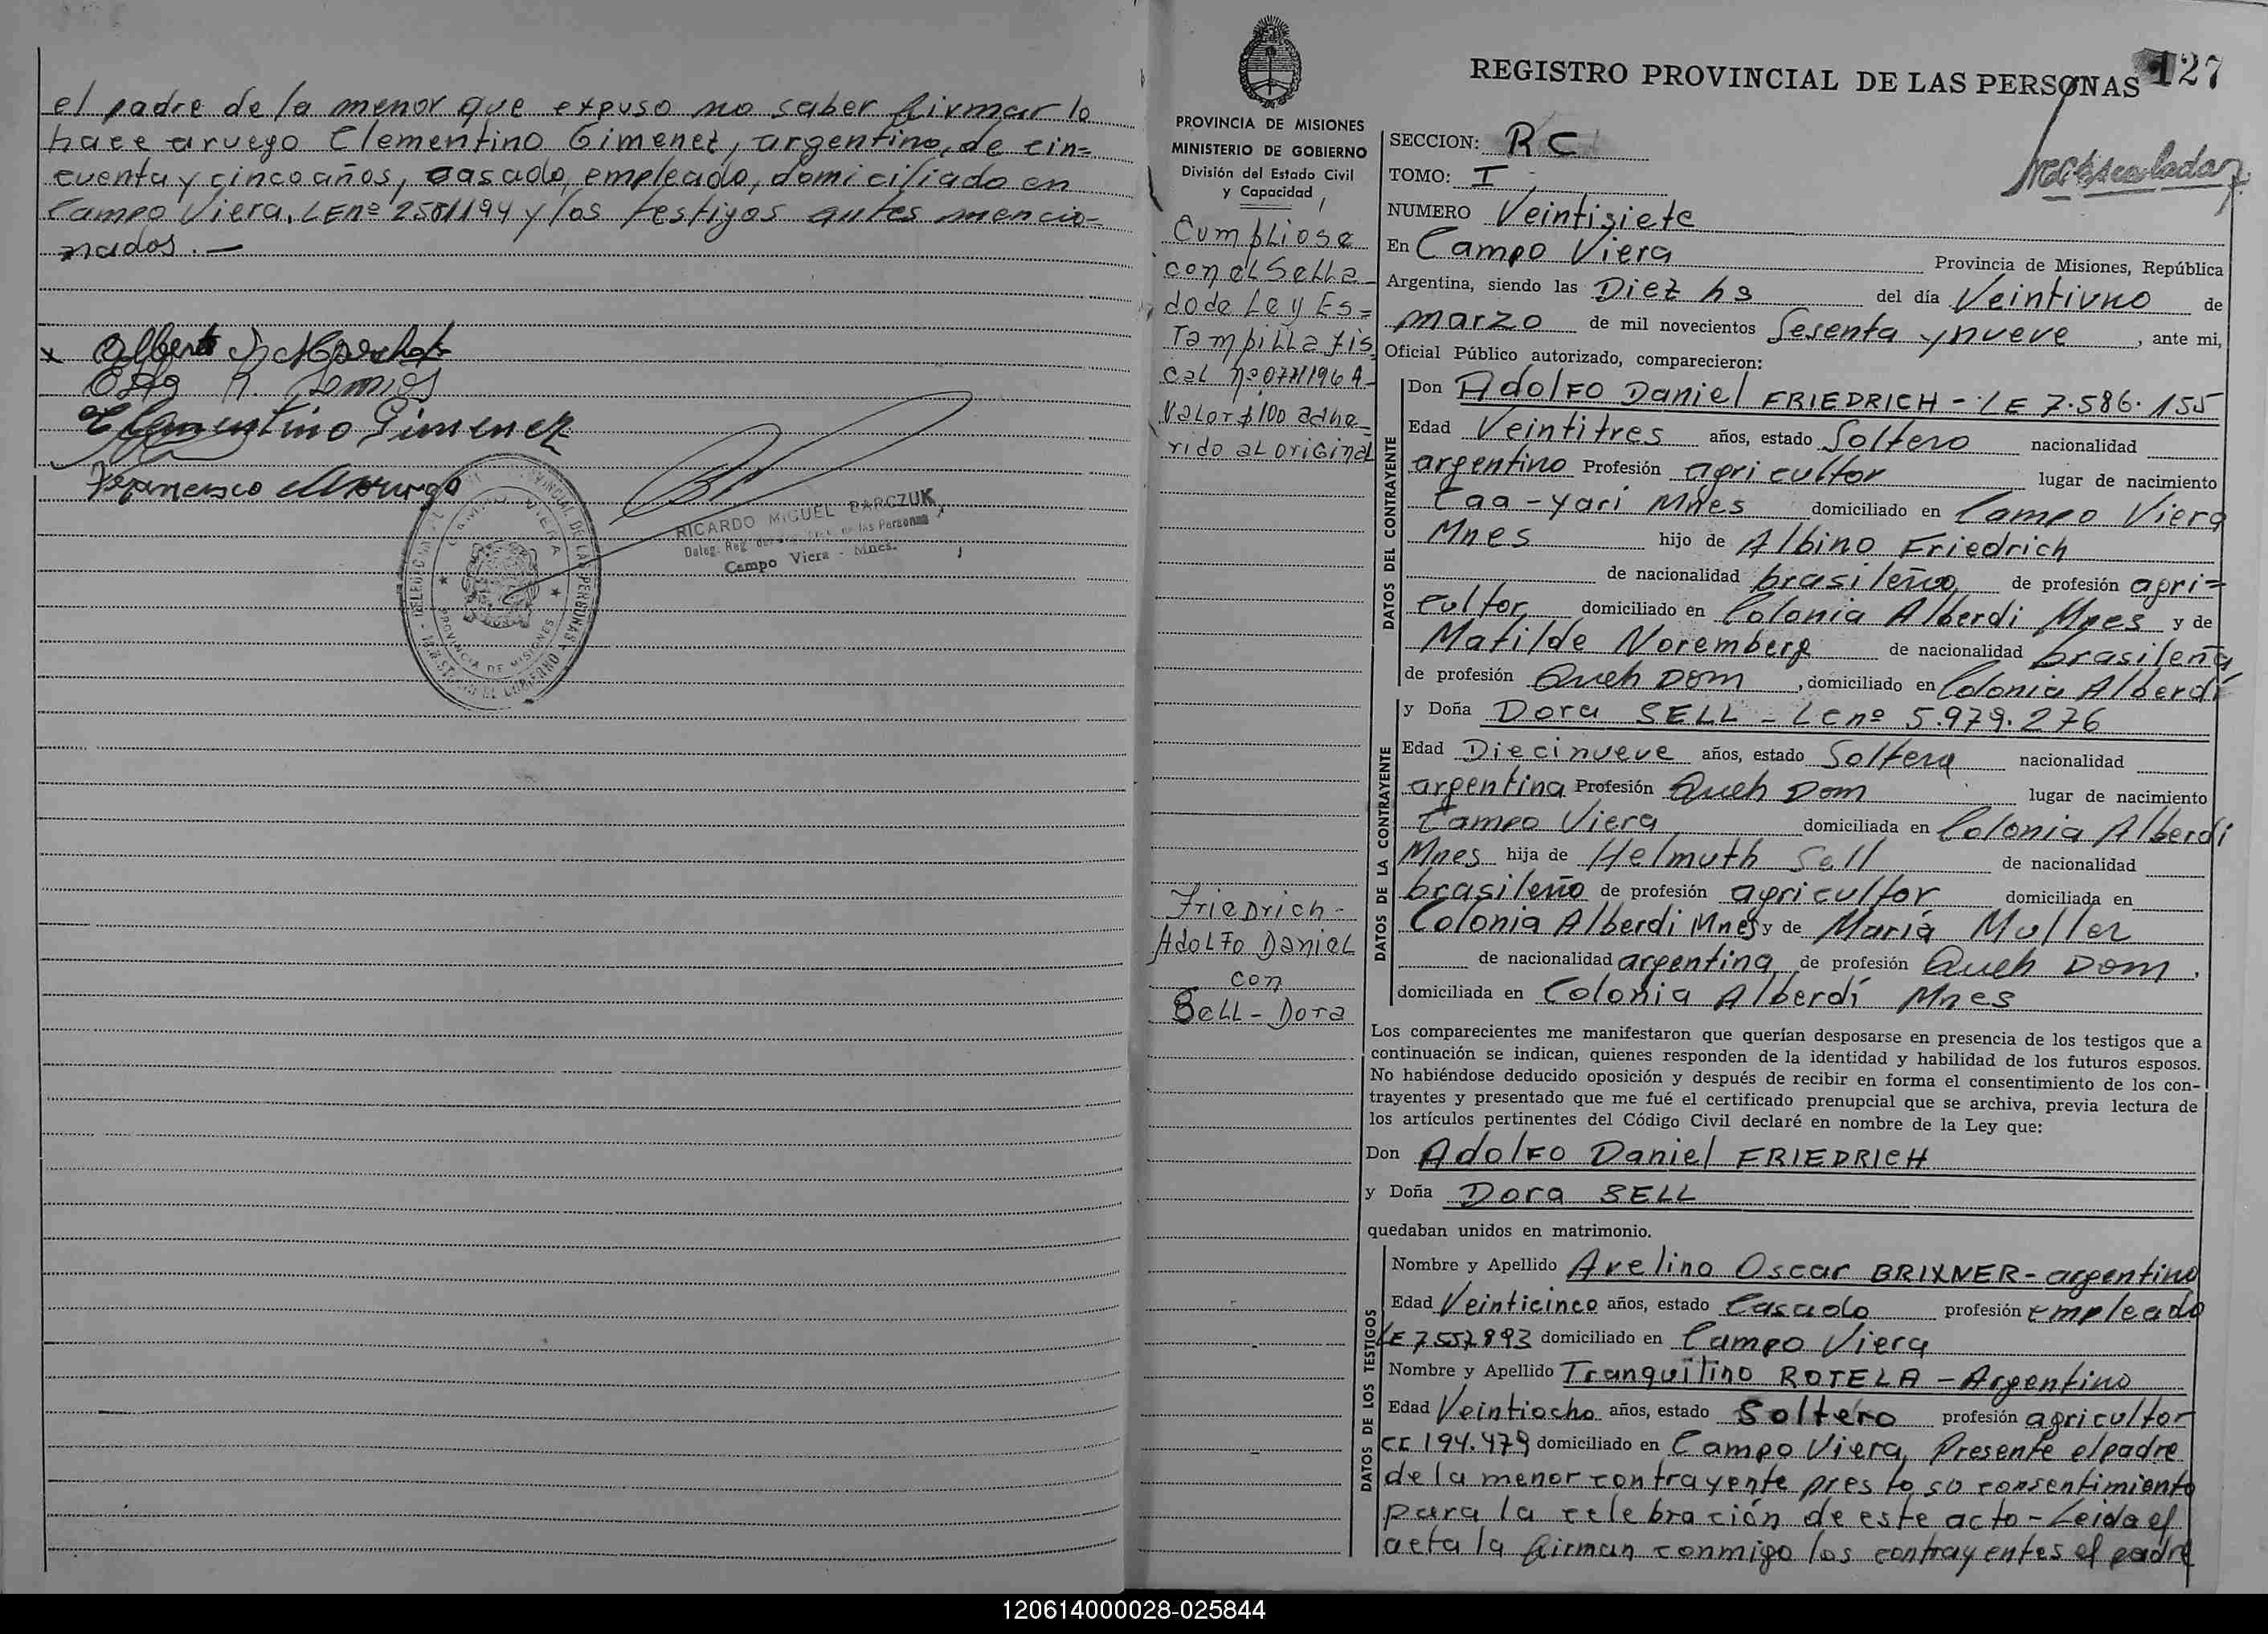 el padre de la menor que expuso no saber firmar lo
hace a ruego Clementino Gimenez, argentino, de cin=
cuenta y cinco años, casado, empleado, domiciliado en
Campo Viera, LE nº 2581194 y los testigos antes mencio=
nados.—
x Alberto
Clementino Gimenez
Francisco
RICARDO MIGUEL BARCZUK
Deleg. Reg. de las Personas
Campo Viera - Mnes.
CAMPO VIERA
PROVINCIA DE MISIONES
REGISTRO PROVINCIAL DE LAS PERSONAS 127
PROVINCIA DE MISIONES
MINISTERIO DE GOBIERNO
División del Estado Civil
y Capacidad
Cumpliose
con el Sella
do de Ley Es=
Tampilla fis
cal nº
Valor $100 adhe
rido al original
Friedrich-
Adolfo Daniel
con
Sell - Dora
SECCION: RC
TOMO: I
NUMERO Veintisiete
En Campo Viera Provincia de Misiones, República
Argentina, siendo las Diez hs del día Veintiuno de
marzo de mil novecientos Sesenta y nueve, ante mi,
Oficial Público autorizado, comparecieron:
DATOS DEL CONTRAYENTE
Don Adolfo Daniel FRIEDRICH - LE 7.586.155
Edad Veintitres años, estado Soltero nacionalidad
argentino Profesión agricultor lugar de nacimiento
Caa-Yari Mnes domiciliado en Campo Viera
Mnes hijo de Albino Friedrich
de nacionalidad brasileño, de profesión agri=
cultor domiciliado en Colonia Alberdi Mnes y de
Matilde Noremberg de nacionalidad brasileña,
de profesión Queh Dom, domiciliado en Colonia Alberdi
DATOS DE LA CONTRAYENTE
y Doña Dora SELL - LC nº 5.979.276
Edad Diecinueve años, estado Soltera nacionalidad
argentina Profesión Queh Dom lugar de nacimiento
Campo Viera domiciliada en Colonia Alberdi
Mnes hija de Helmuth Sell de nacionalidad
brasileño de profesión agricultor domiciliada en
Colonia Alberdi Mnes y de María Muller
de nacionalidad argentina, de profesión Queh Dom,
domiciliada en Colonia Alberdí Mnes
Los comparecientes me manifestaron que querían desposarse en presencia de los testigos que a
continuación se indican, quienes responden de la identidad y habilidad de los futuros esposos.
No habiéndose deducido oposición y después de recibir en forma el consentimiento de los con-
trayentes y presentado que me fué el certificado prenupcial que se archiva, previa lectura de
los artículos pertinentes del Código Civil declaré en nombre de la Ley que:
Don Adolfo Daniel FRIEDRICH
y Doña Dora SELL
quedaban unidos en matrimonio.
DATOS DE LOS TESTIGOS
Nombre y Apellido Avelino Oscar BRIXNER - argentino
Edad Veinticinco años, estado Casado profesión empleado
LE 7557893 domiciliado en Campo Viera
Nombre y Apellido Tranquilino ROTELA - Argentino
Edad Veintiocho años, estado Soltero profesión agricultor
CI 194.479 domiciliado en Campo Viera, Presente el padre
de la menor contrayente presto su consentimiento
para la celebración de este acto - Leida el
acta la firman conmigo los contrayentes el padre
120614000028-025844